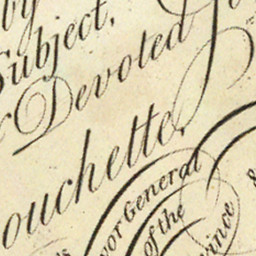 by
Subject,
& Devoted
ouchette,
vor General
of the
vince